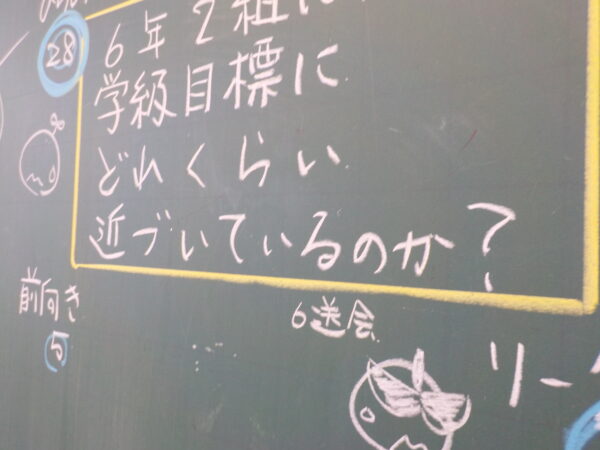 28
6年2組は
学級目標に
どれくらい
近づいているのか?
前向き
5
6送会
リー